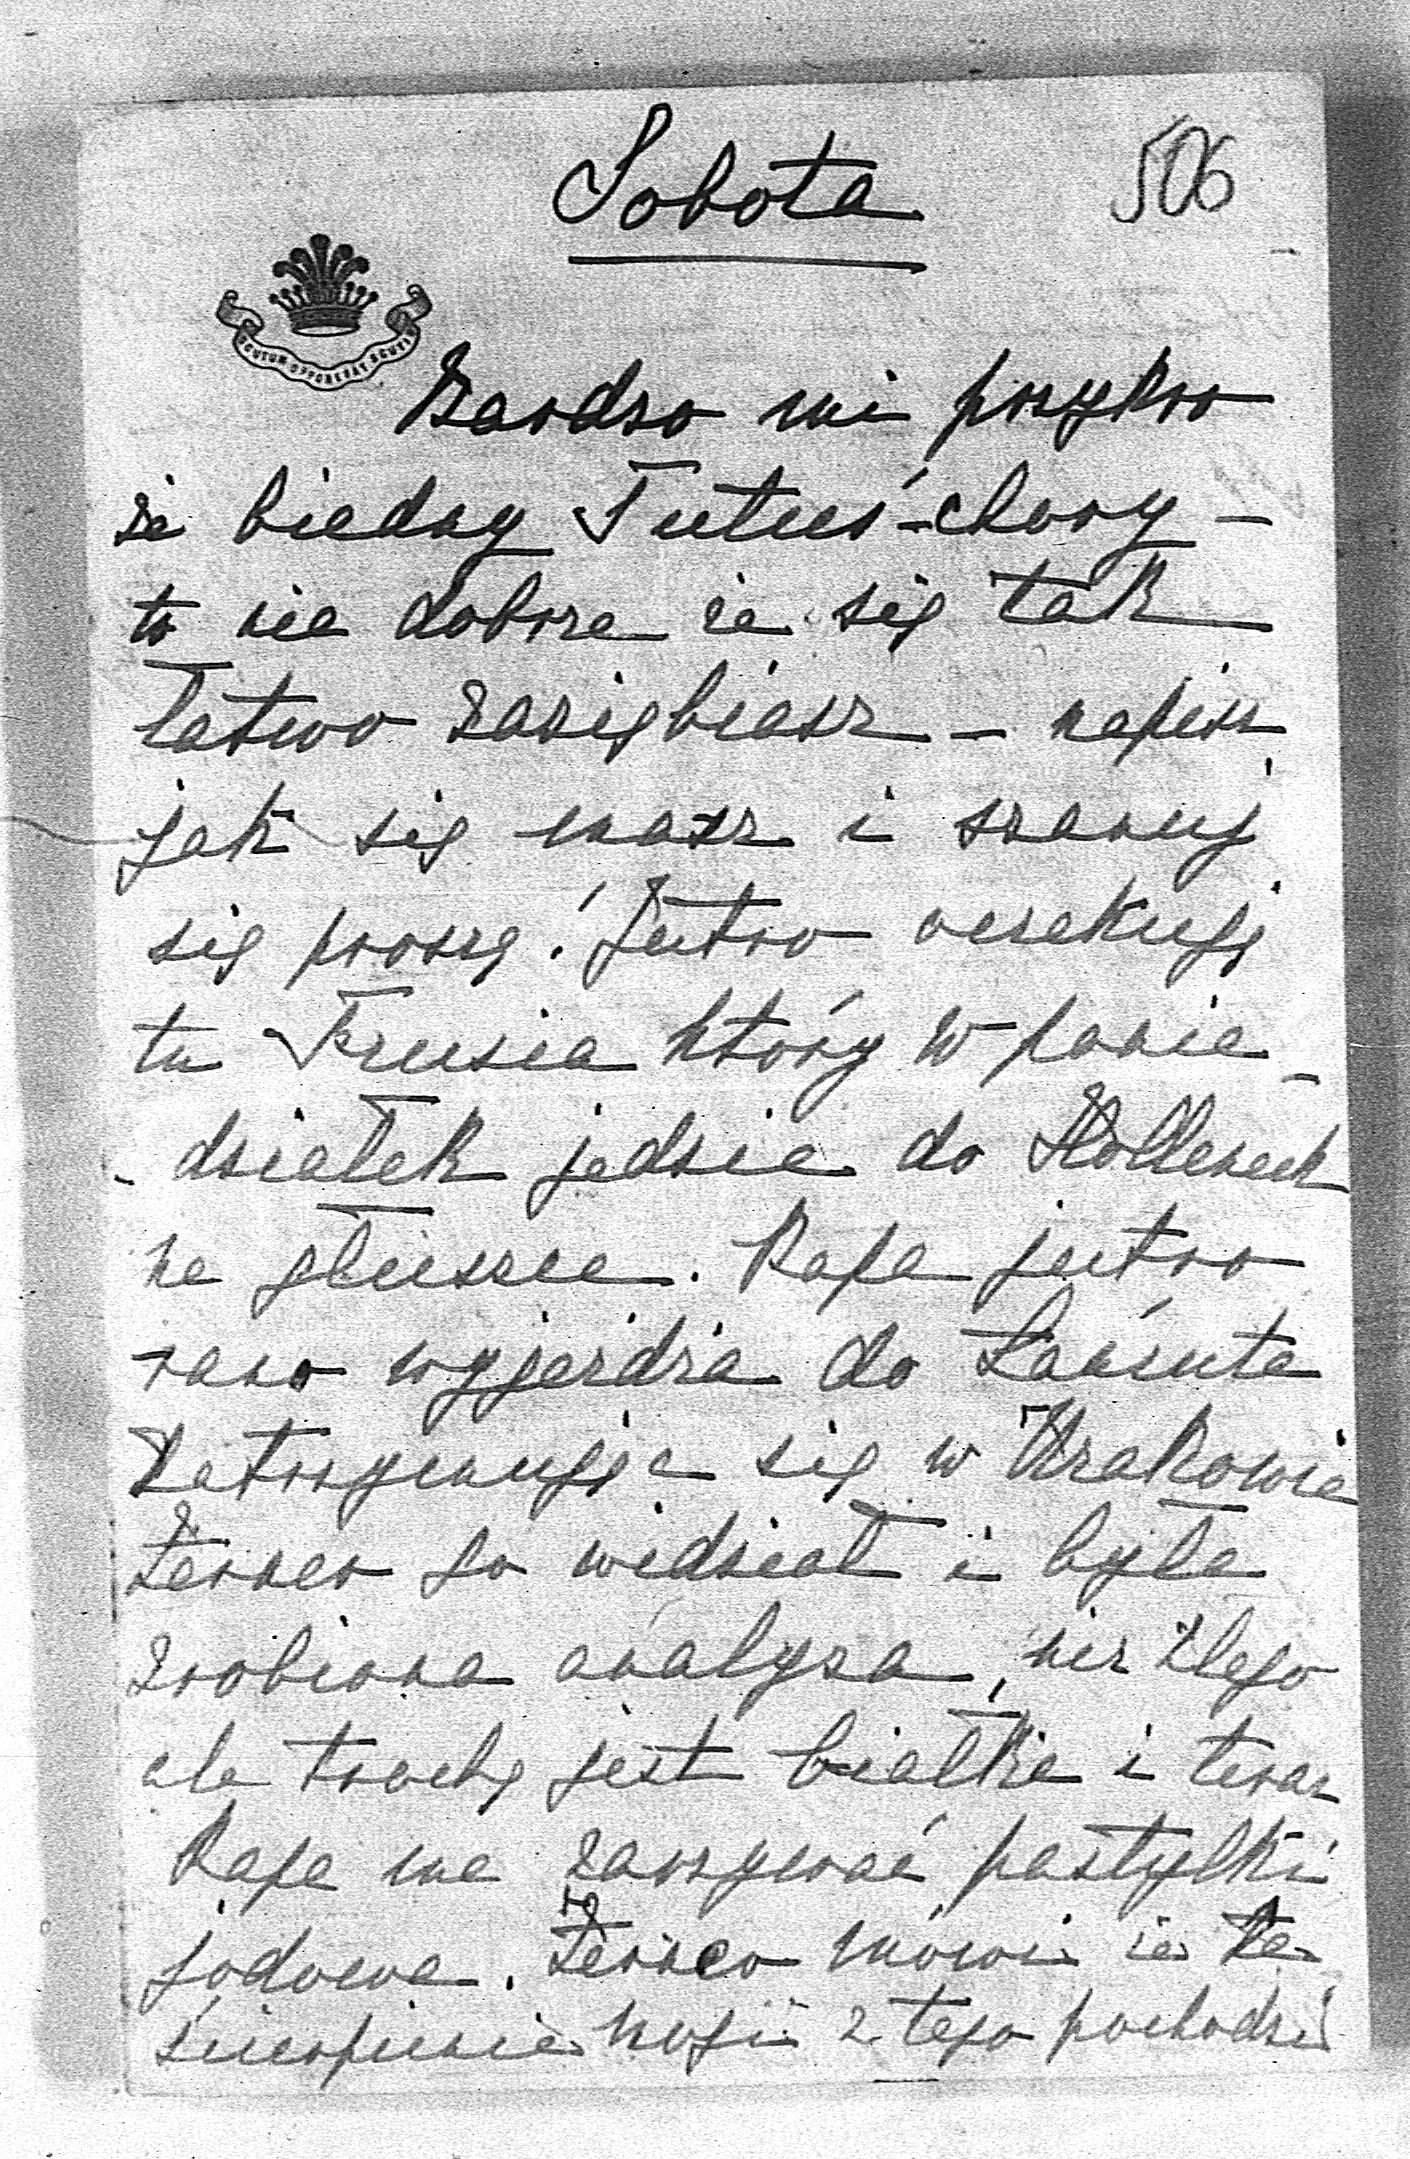 Sobota
506
SCUTUM OPPONEBAT SCUTIS
Bardzo mi przykro
że biedny Tutuś chory –
to nie dobrze że się tak
łatwo zaziębiasz – napisz
jak się masz i szanuj
się proszę! Jutro oczekuję
tu Frusia który w ponie-
-działek jedzie do Holleneck
na głuszce. Papa jutro
rano wyjeżdża do Łańcuta
zatrzymując się w Krakowie
go widział i była
zrobiona analyza, nic złego
ale trochę jest białka i teraz
Papa ma zażywać pastylki
jodowe. mówi że te
cierpienie nogi z tego pochodzi